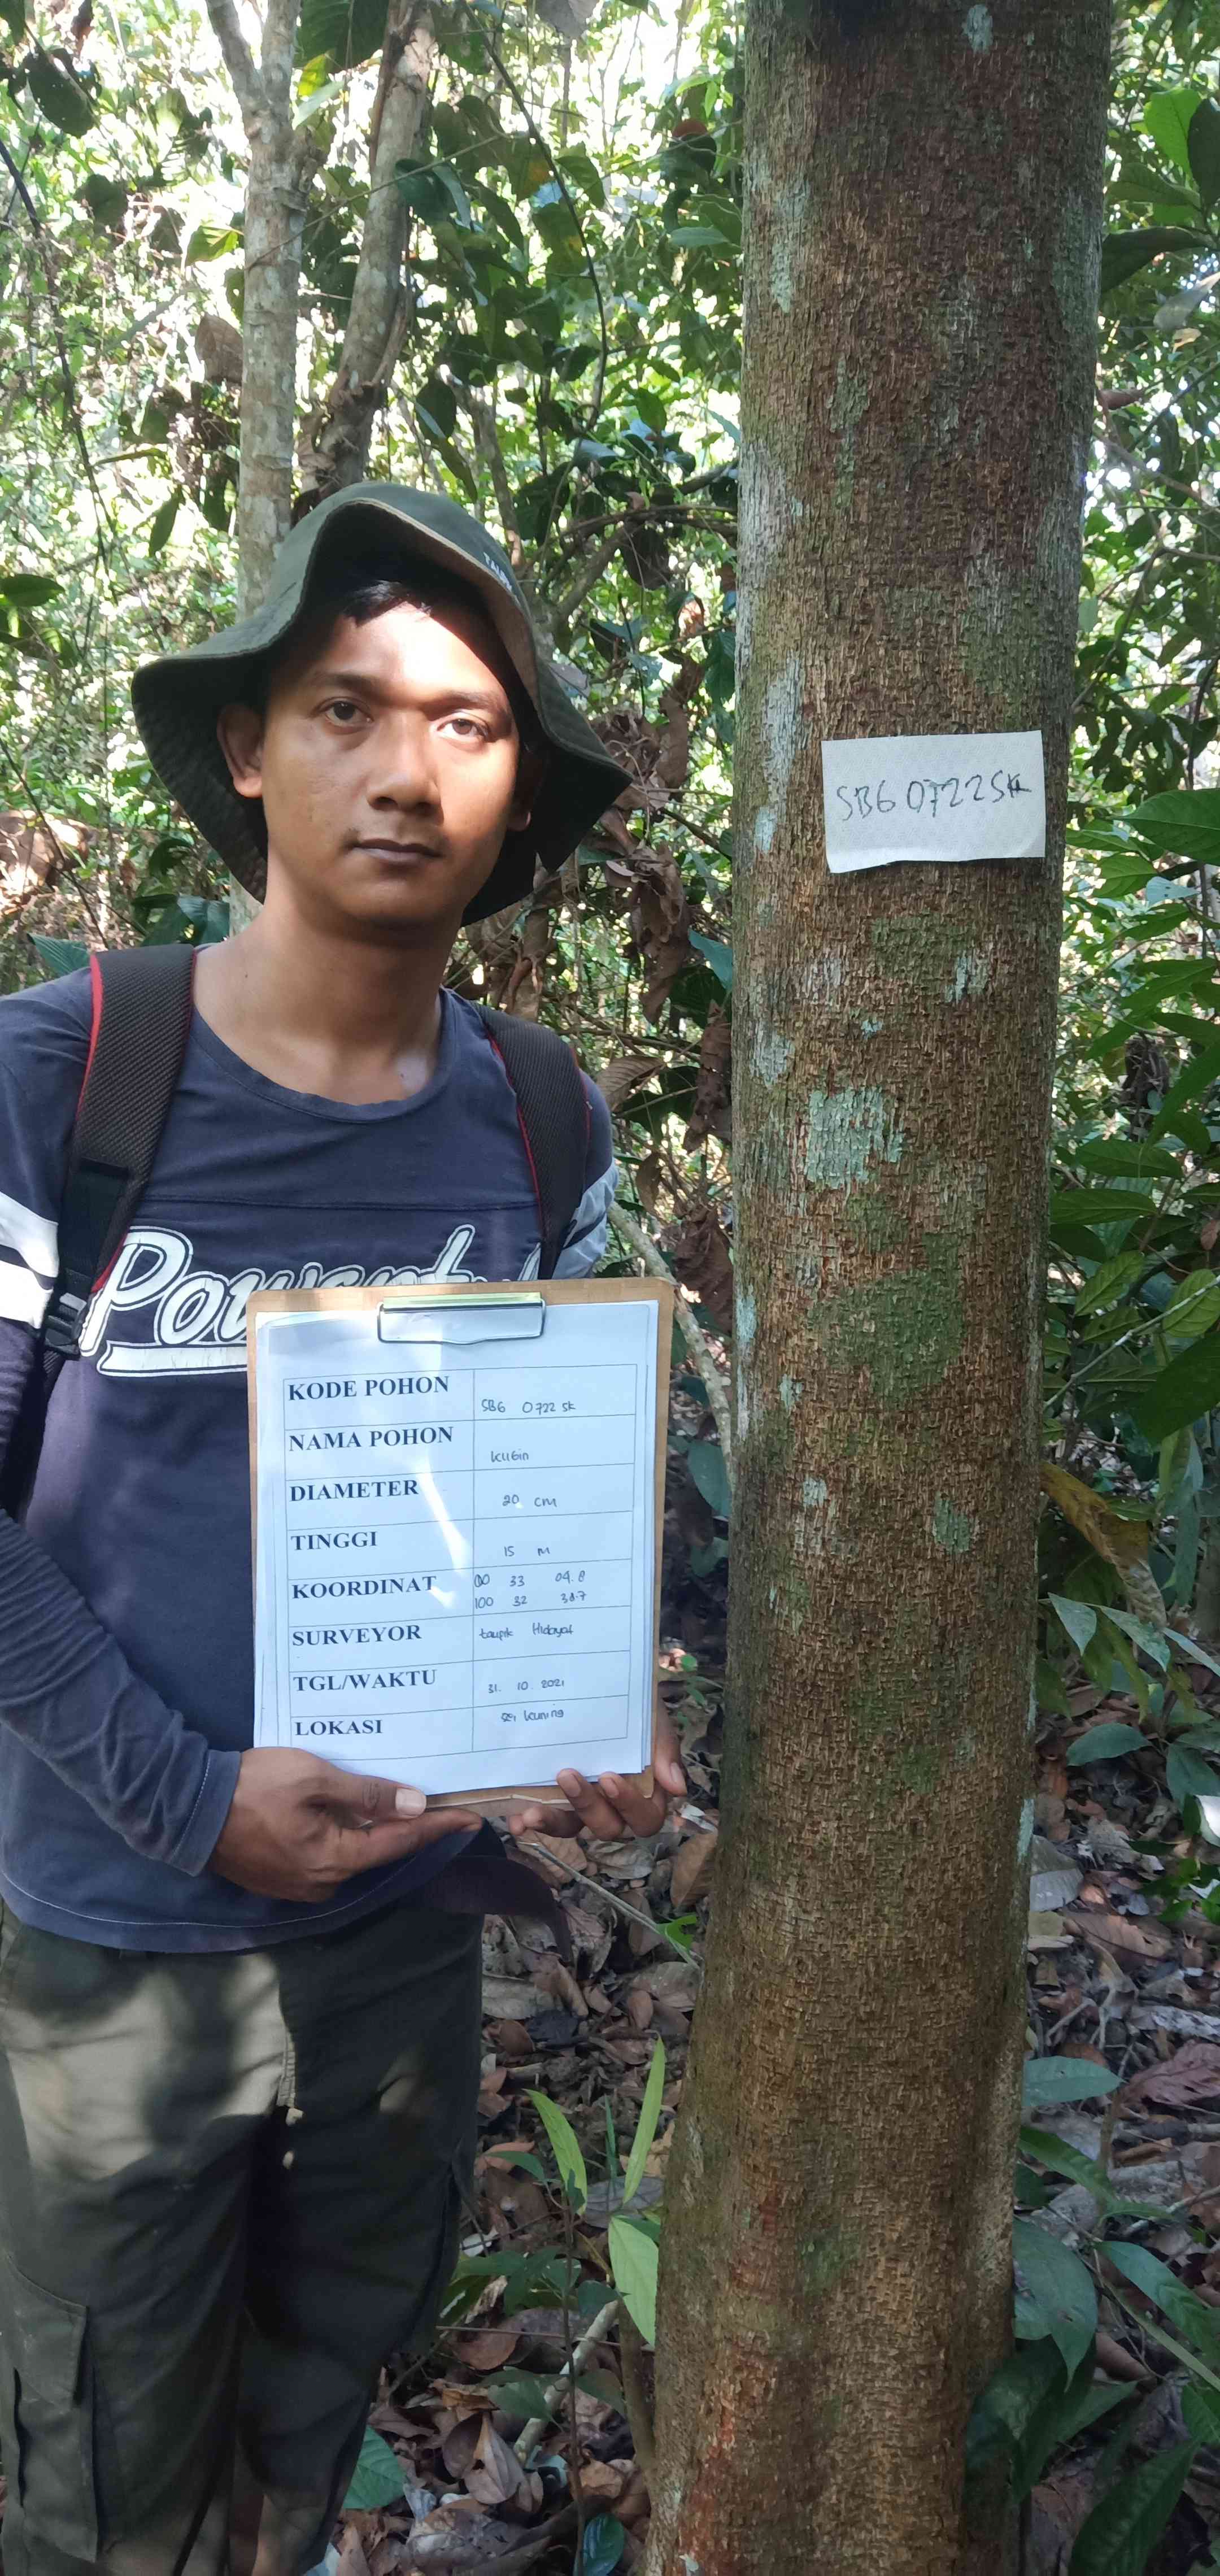 SB6 0722 SK
KODE POHON SB6 0722 SK
NAMA POHON kubin
DIAMETER 20 cm
TINGGI 15 m
KOORDINAT 00 33 04.8
100 32 38.7
SURVEYOR taupik Hidayat
TGL/WAKTU 31. 10. 2021
LOKASI kuning